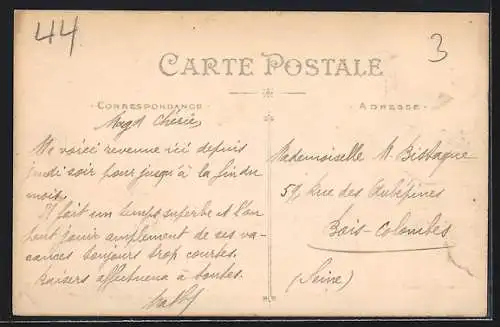 44
3
CARTE POSTALE
CORRESPONDANCE
ADRESSE
Magd Chérie,
Me voici revenue ici depuis
jeudi soir pour jusqu'à la fin du
mois.
Il fait un temps superbe et l'on
peut jouir amplement de ses va-
cances toujours trop courtes.
Baisers affectueux à toutes.
Mademoiselle M. Bistagne
59, Rue des Aubépines
Bois-Colombes
(Seine)